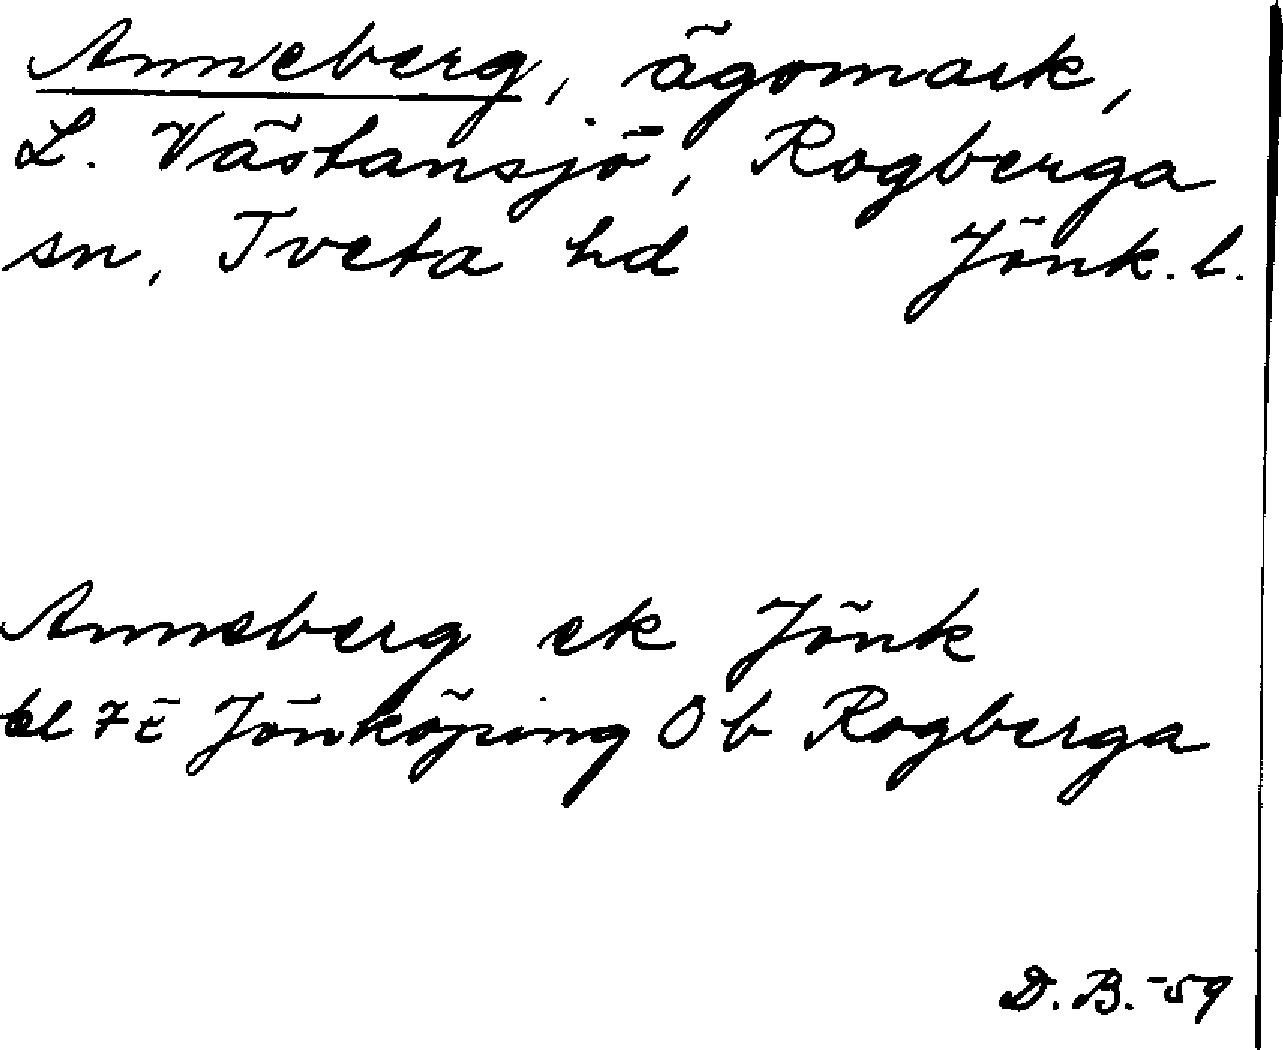 Anneberg, ägomark,
L. Västansjö, Rogberga
sn, Tveta hd Jönk. l.
Anneberg ek Jönk
bl 7E Jönköping Ob Rogberga
D. B. -59